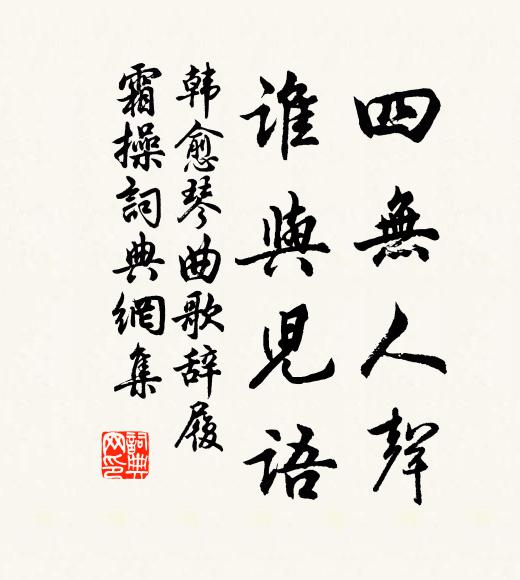 四無人聲
誰與兒語
韩愈琴曲歌辞履
霜操詞典網集
詞典网印